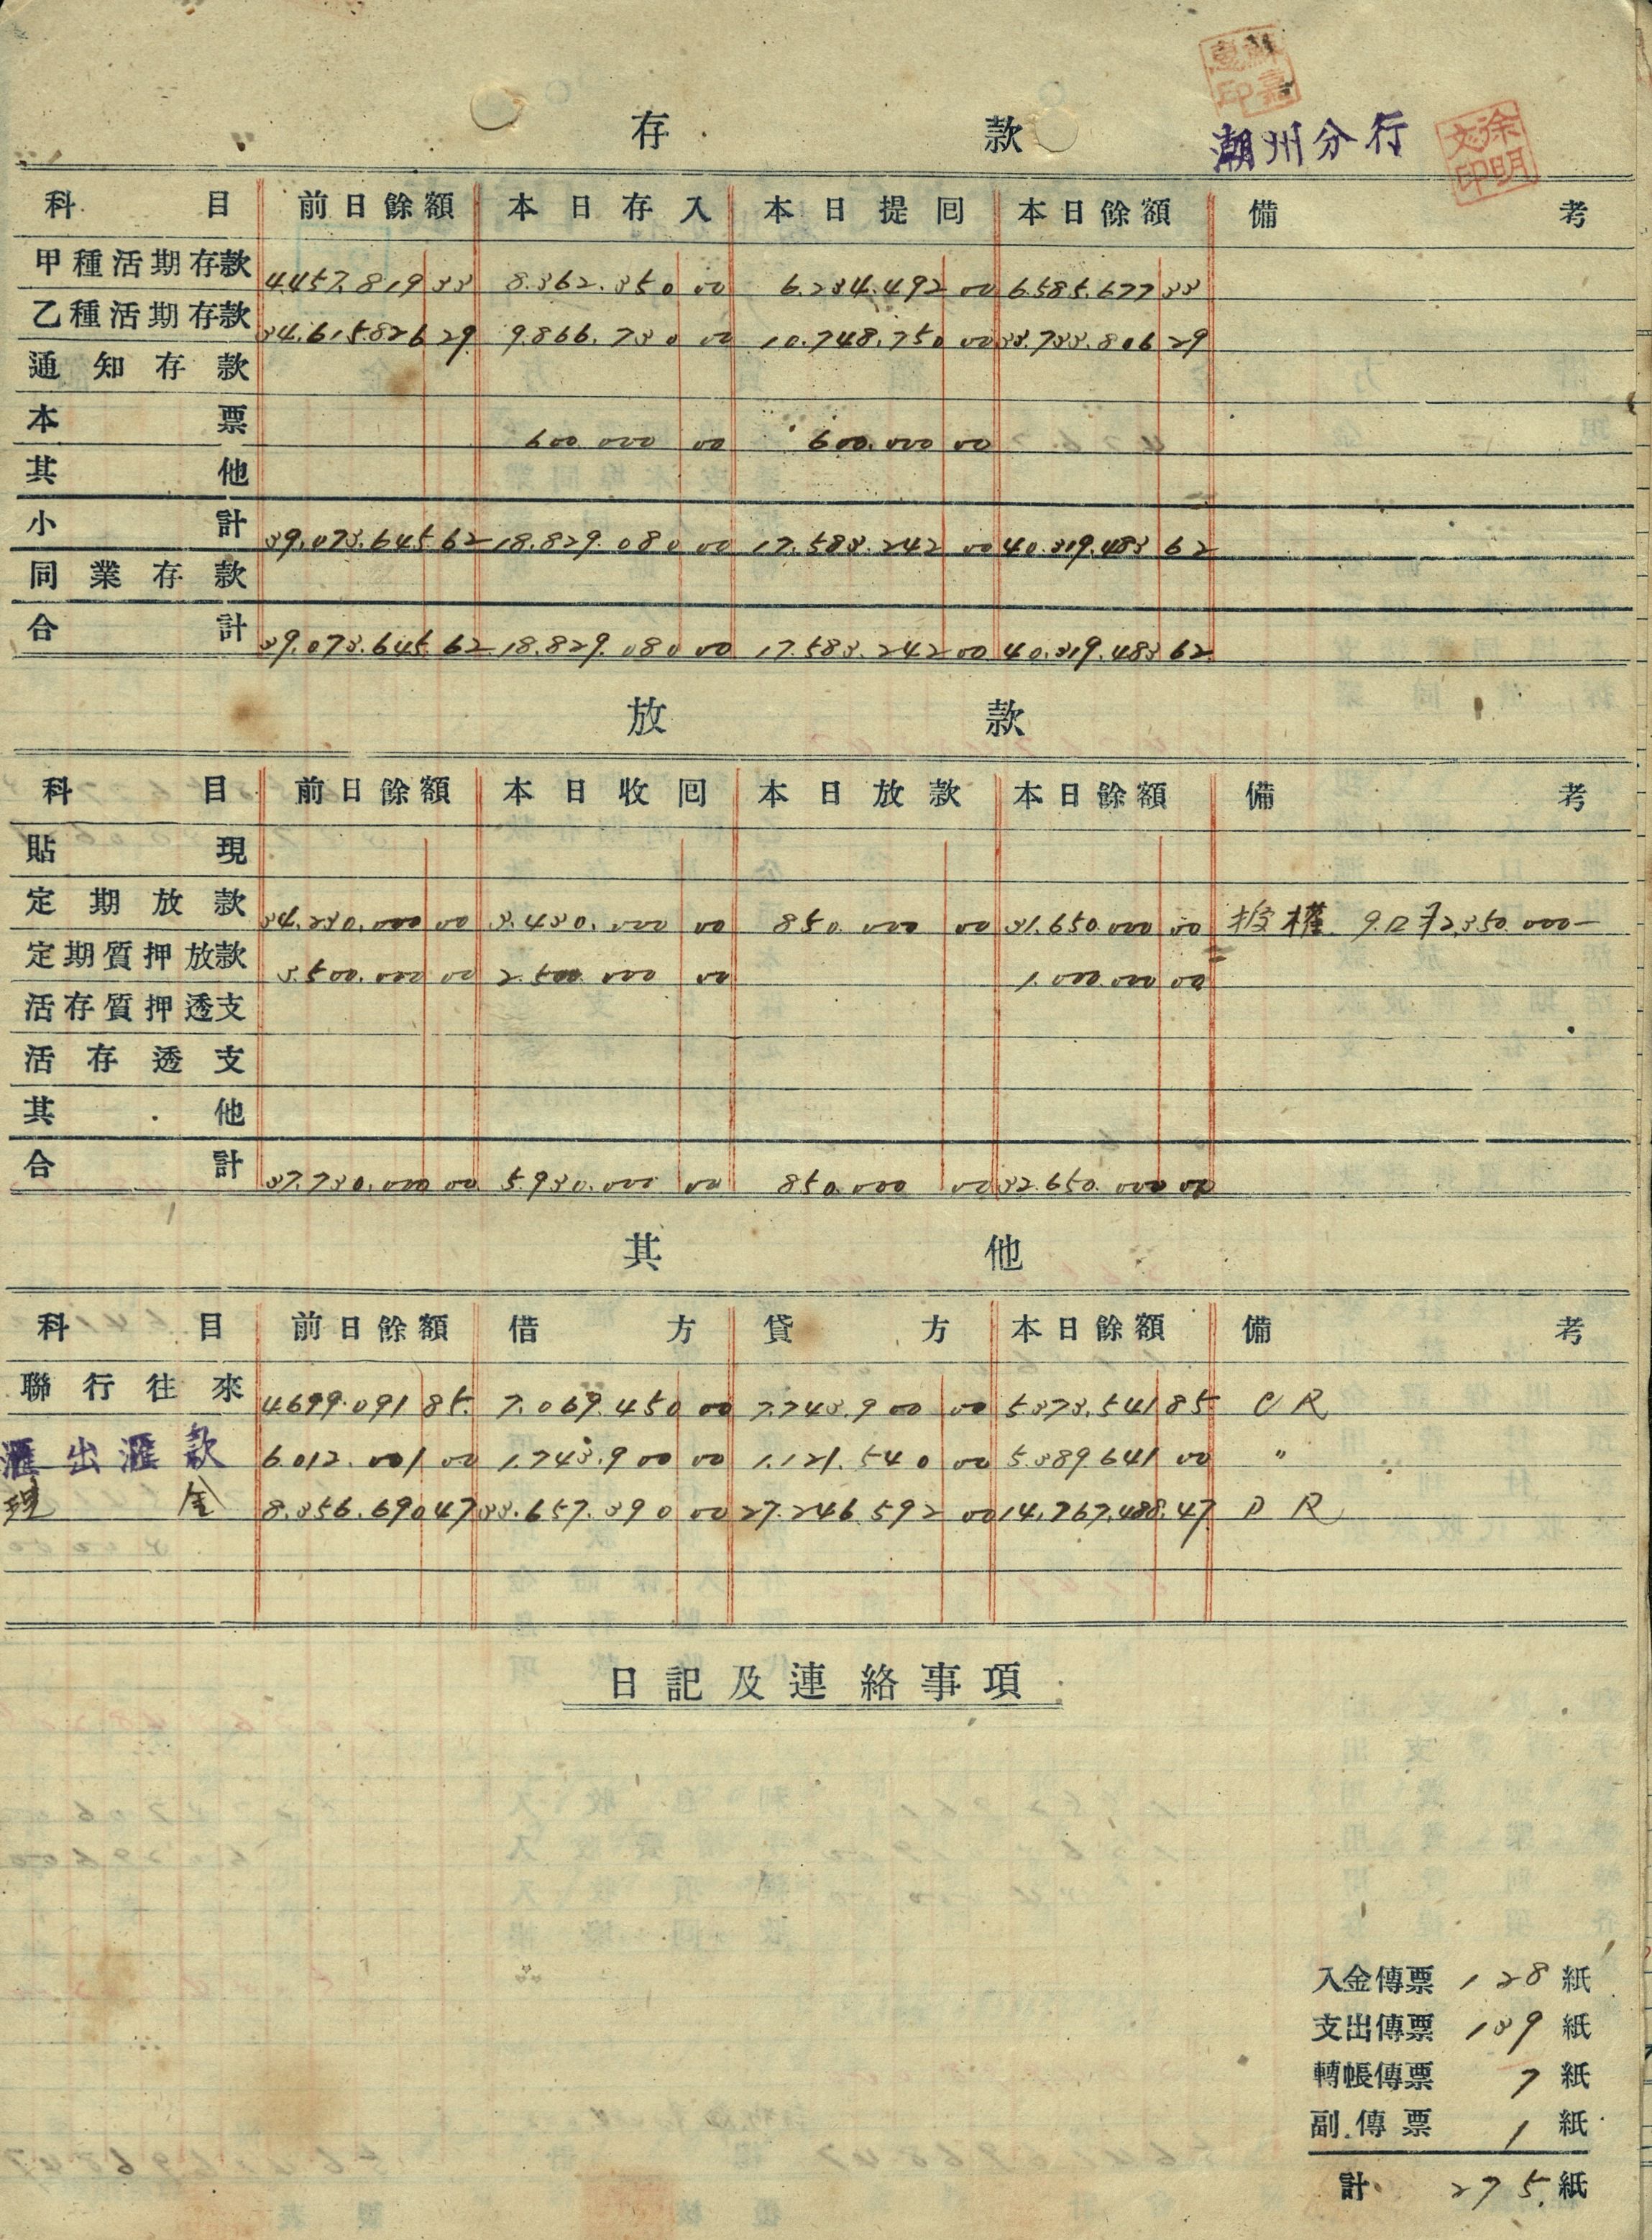 蘇嘉惠印
存款
潮州分行
徐明文印
科目 前日餘額 本日存入 本日提囘 本日餘額 備考
甲種活期存款 4.457.819 33 8.362.350 00 6.234.492 00 6.585.677 33
乙種活期存款 34.615.826 29 9.866.730 00 10.748.750 00 33.733.806 29
通知存款
本票 600.000 00 600.000 00
其他
小計 39.073.645 62 18.829.080 00 17.583.242 00 40.319.483 62
同業存款
合計 39.073.645 62 18.829.080 00 17.583.242 00 40.319.483 62
放款
科目 前日餘額 本日收囘 本日放款 本日餘額 備考
貼現
定期放款 34.230.000 00 3.430.000 00 850.000 00 31.650.000 00 授權 9.口 2.350.000-
定期質押放款 3.500.000 00 2.500.000 00 1.000.000 00
活存質押透支
活存透支
其他
合計 37.730.000 00 5.930.000 00 850.000 00 32.650.000 00
其他
科目 前日餘額 借方 貸方 本日餘額 備考
聯行往來 4699.091 85 7.069.450 00 7.743.900 00 5.373.541 85 CR
滙出滙款 6.012.001 00 1.743.900 00 1.121.540 00 5.389.641 00 〃
現金 8.356.690 47 33.657.390 00 27.246.592 00 14.767.488 47 DR
日記及連絡事項
入金傳票 128 紙
支出傳票 139 紙
轉帳傳票 7 紙
副傳票 1 紙
計 275 紙